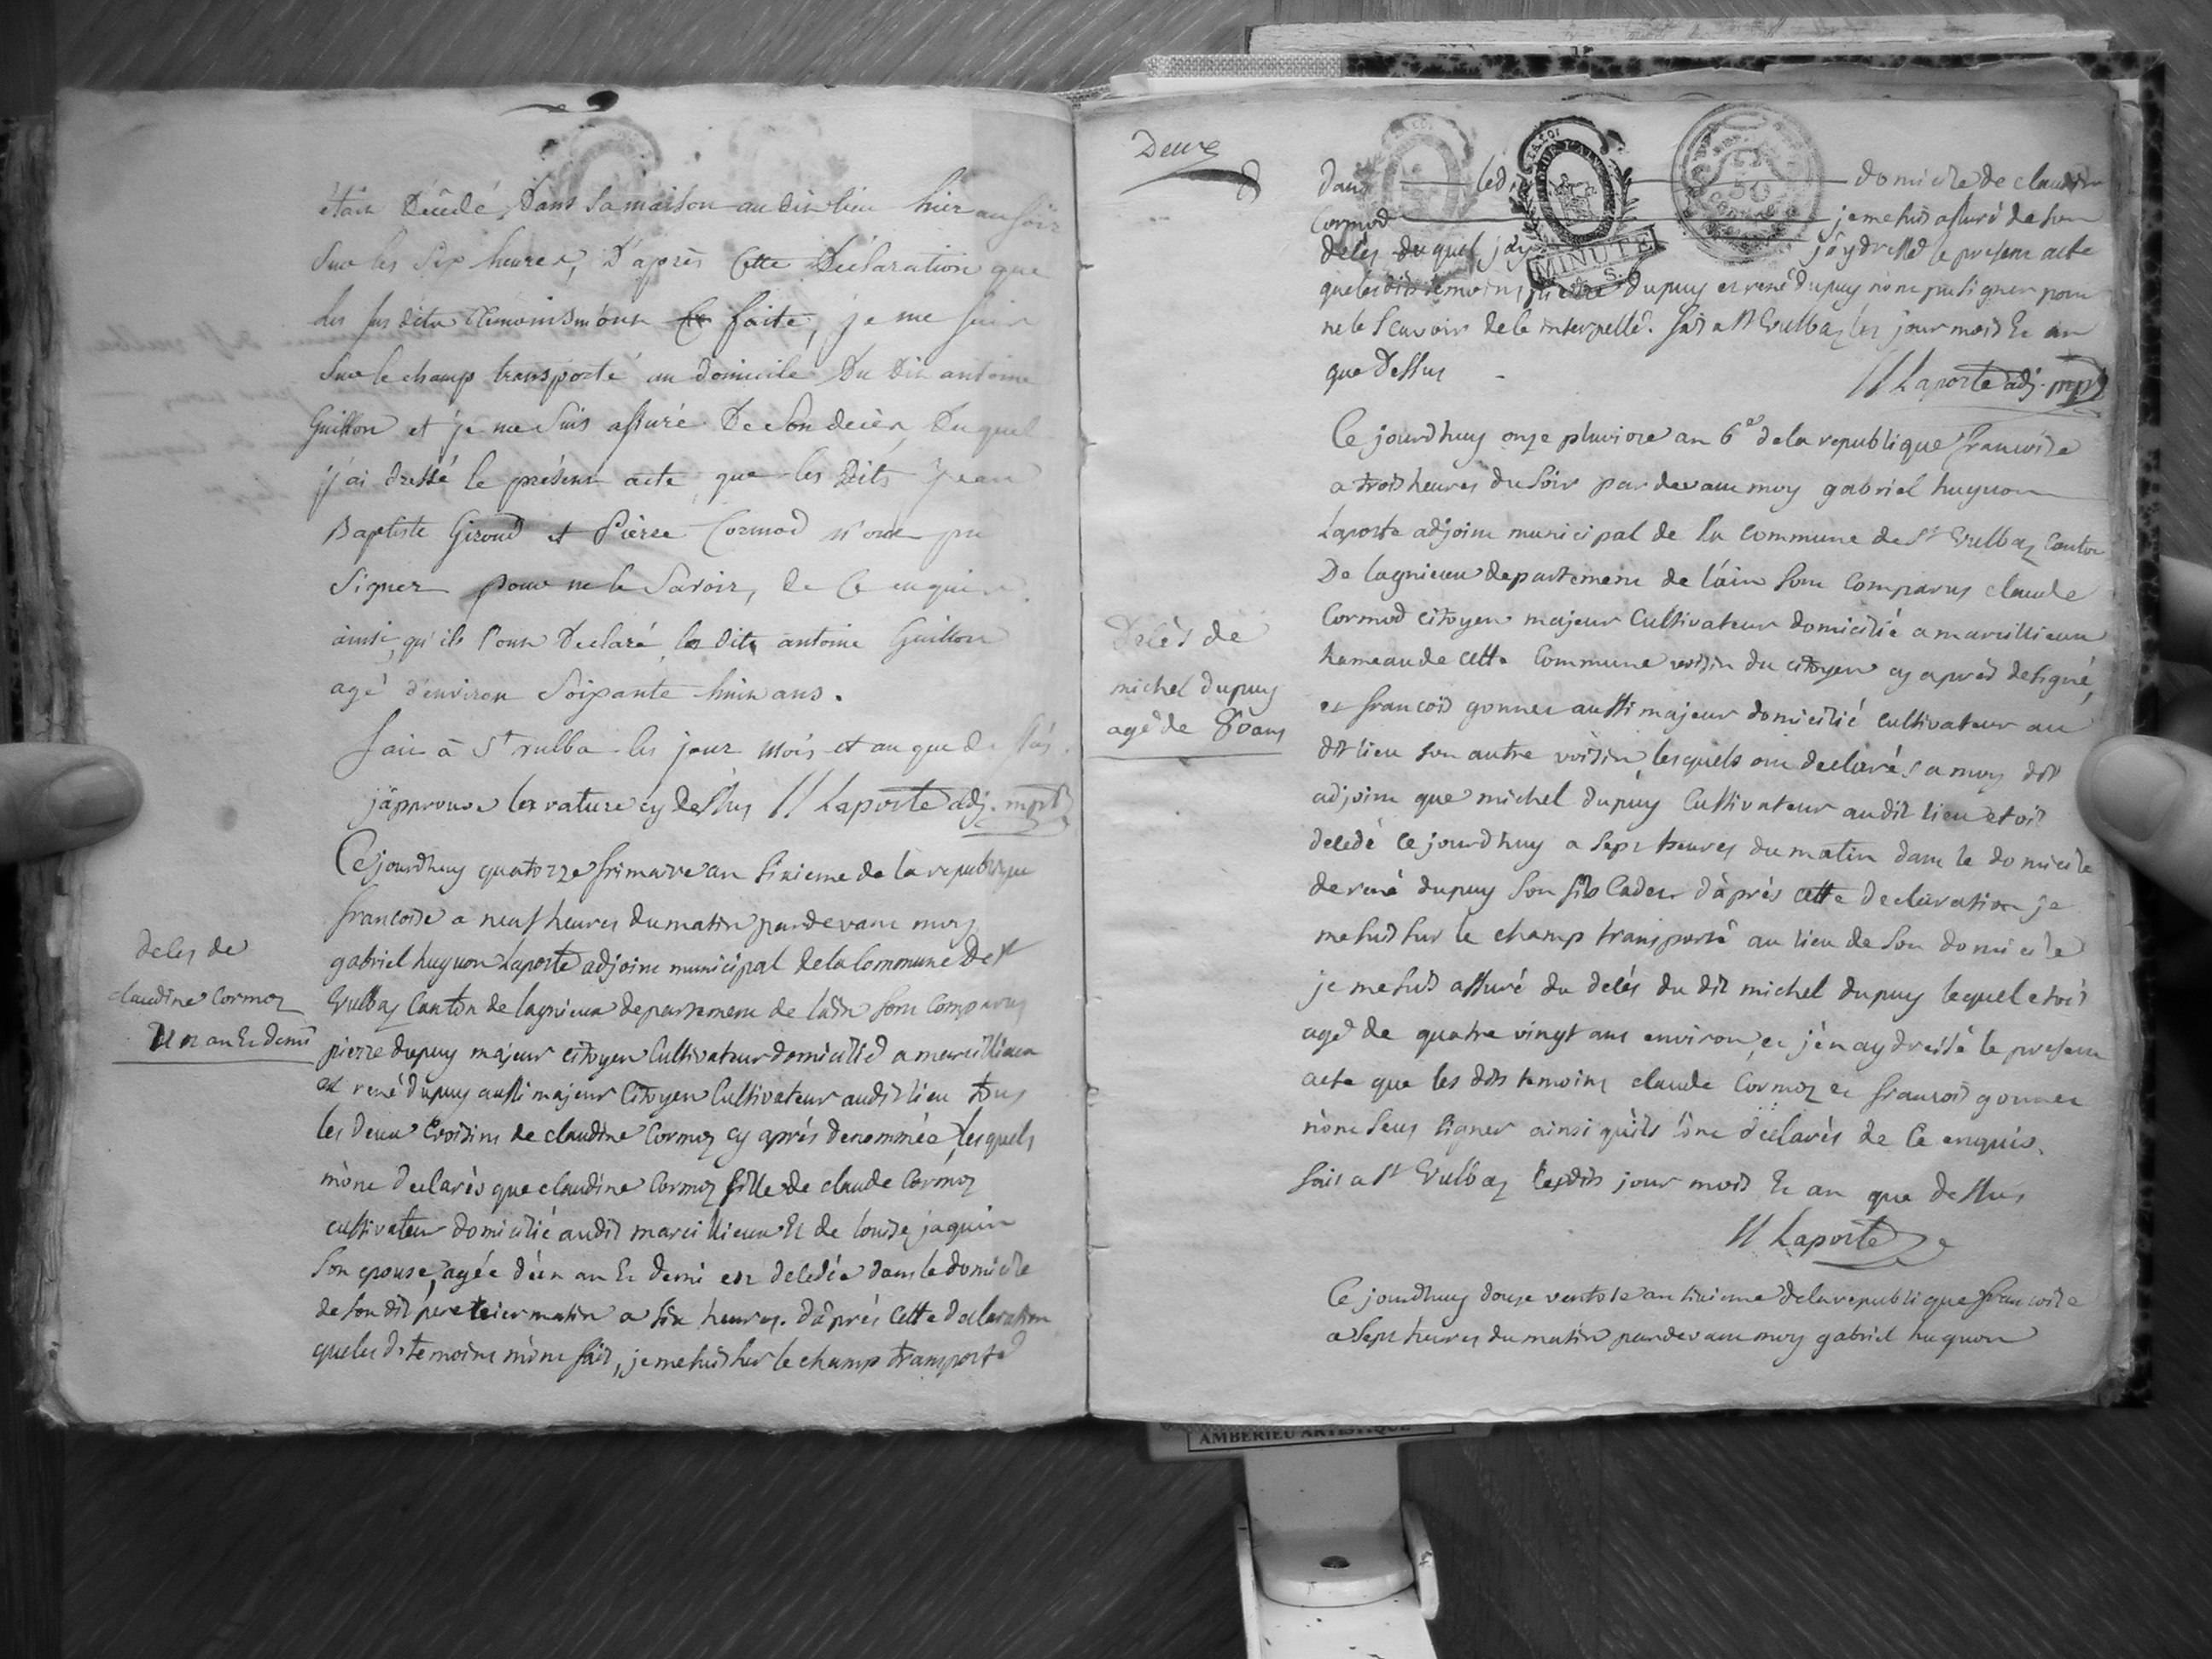 étoit Décédé, Dans Sa maison au dit lieu hier au soir
Sur les Six heures, D'après Cette Déclaration que
les sus dits témoins m'ont faite, je me suis
Sur le champ transporté au domicile Du Dit antoine
Guillon et je me Suis assuré De Son decès, Duquel
j'ai dressé le présent acte que les Dits Jean
Baptiste Giroud et Pierre Cormod n'ont pu
Signer pour ne le Savoir, de Ce enquis
ainsi qu'ils l'ont Declaré, le Dit antoine Guillon
agé d'environ Soixante huit ans.
fait à St vulba les jour mois et an que dessus
j'approuve la rature cy dessus Laporte adj. mpl
Ce jourdhuy quatorze frimaire an sixieme de la republique
francoise a neuf heures du matin pardevant moy
gabriel huguon Laporte adjoint municipal de la Commune de St
Vulbaz Canton de lagnieux departement de lain sont Comparus
pierre dupuy majeur citoyen Cultivateur domicilié a marcillieux
et rené dupuy aussi majeur Citoyen Cultivateur audit lieu tous
les deux Voisins de claudine Cormoz cy après denommée, lesquels
m'ont declarés que claudine Cormoz fille de claude Cormoz
cultivateur domicilié audit marcillieux & de louise jaquin
Son epouse, agée d'un an & demi est decedée dans le domicile
de son dit pere hier matin a six heures. d'après cette declaration
que les dts temoins m'ont fait, je me suis sur le champ transporté
deces de
claudine Cormoz
Un an & demi
Deux
8
dans ledit domicile de claudine
Cormod je me suis assuré de son
decés duquel j'ay j'ay dressé le present acte
que lesdits temoins pierre dupuy et rené dupuy n'ont pu signer pour
ne le Scavoir de ce interpellé. fait a St Vulbaz les jour mois & an
que Dessus
Laporte adj. mpl
MINUTE
Ce jourdhuy onze pluviose an 6e de la republique francoise
a trois heures du soir par devant moy gabriel huguon
Laporte adjoint municipal de la Commune de St Vulbaz Canton
De lagnieux departement de l'ain sont Comparus claude
Cormod citoyen majeur Cultivateur domicilié a marcillieux
hameau de cette Commune voisin du citoyen cy après designé,
et francois gonnet aussi majeur domicilié cultivateur au
dit lieu son autre voisin, lesquels ont declarés a moy dit
adjoint que michel dupuy Cultivateur audit lieu etoit
decedé ce jourdhuy a sept heures du matin dans le domicile
de rené dupuy Son fils Cadet d'après cette declaration je
me suis sur le champ transporté au lieu de Son domicile
je me suis assuré du decés du dit michel dupuy lequel etoit
agé de quatre vingt ans environ, et j'en ay dressé le present
acte que les dits temoins claude Cormoz et francois gonnet
n'ont Sceus signer ainsi qu'ils l'ont declarés de Ce enquis.
fait a St Vulbaz lesdits jour mois & an que dessus
Laporte
Decès de
michel dupuy
agé de 80 ans
Ce jourdhuy douze ventose an sixieme de la republique francoise
a Sept heures du matin pardevant moy gabriel huguon
AMBERIEU ARTISTIQUE